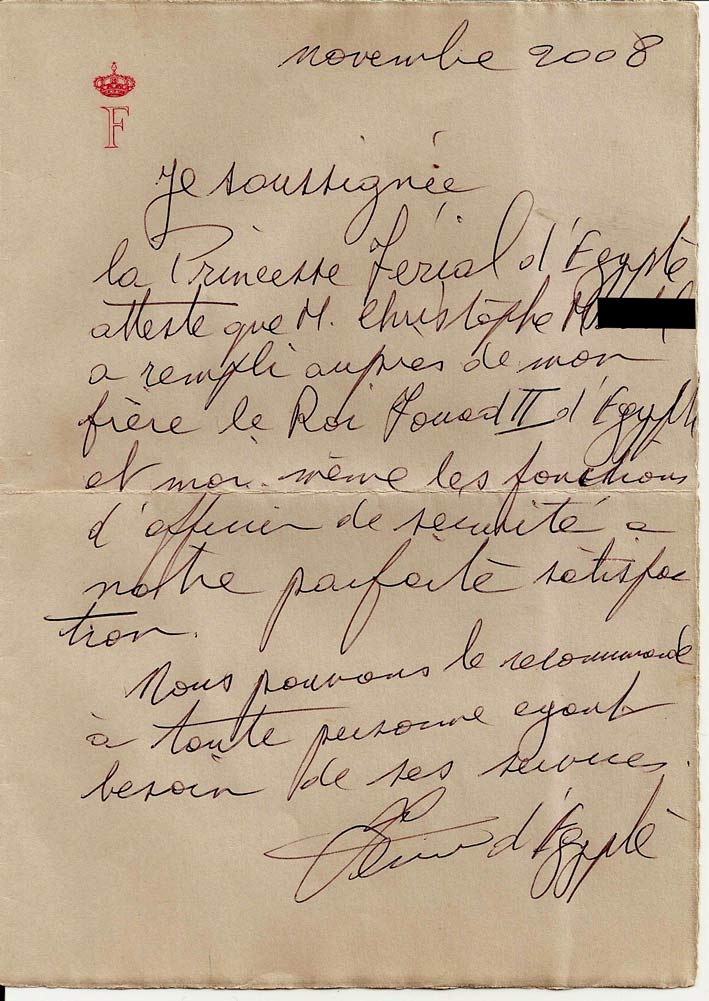 novembre 2008
F
Je soussignée
la Princesse Férial d'Egypte
atteste que M. Christophe M
a rempli auprès de mon
frère le Roi Fouad II d'Egypte
et moi-même les fonctions
d'officier de sécurité a
notre parfaite satisfac
tion.
Nous pouvons le recommande
à toute personne ayant
besoin de ses services.
d'Egypte